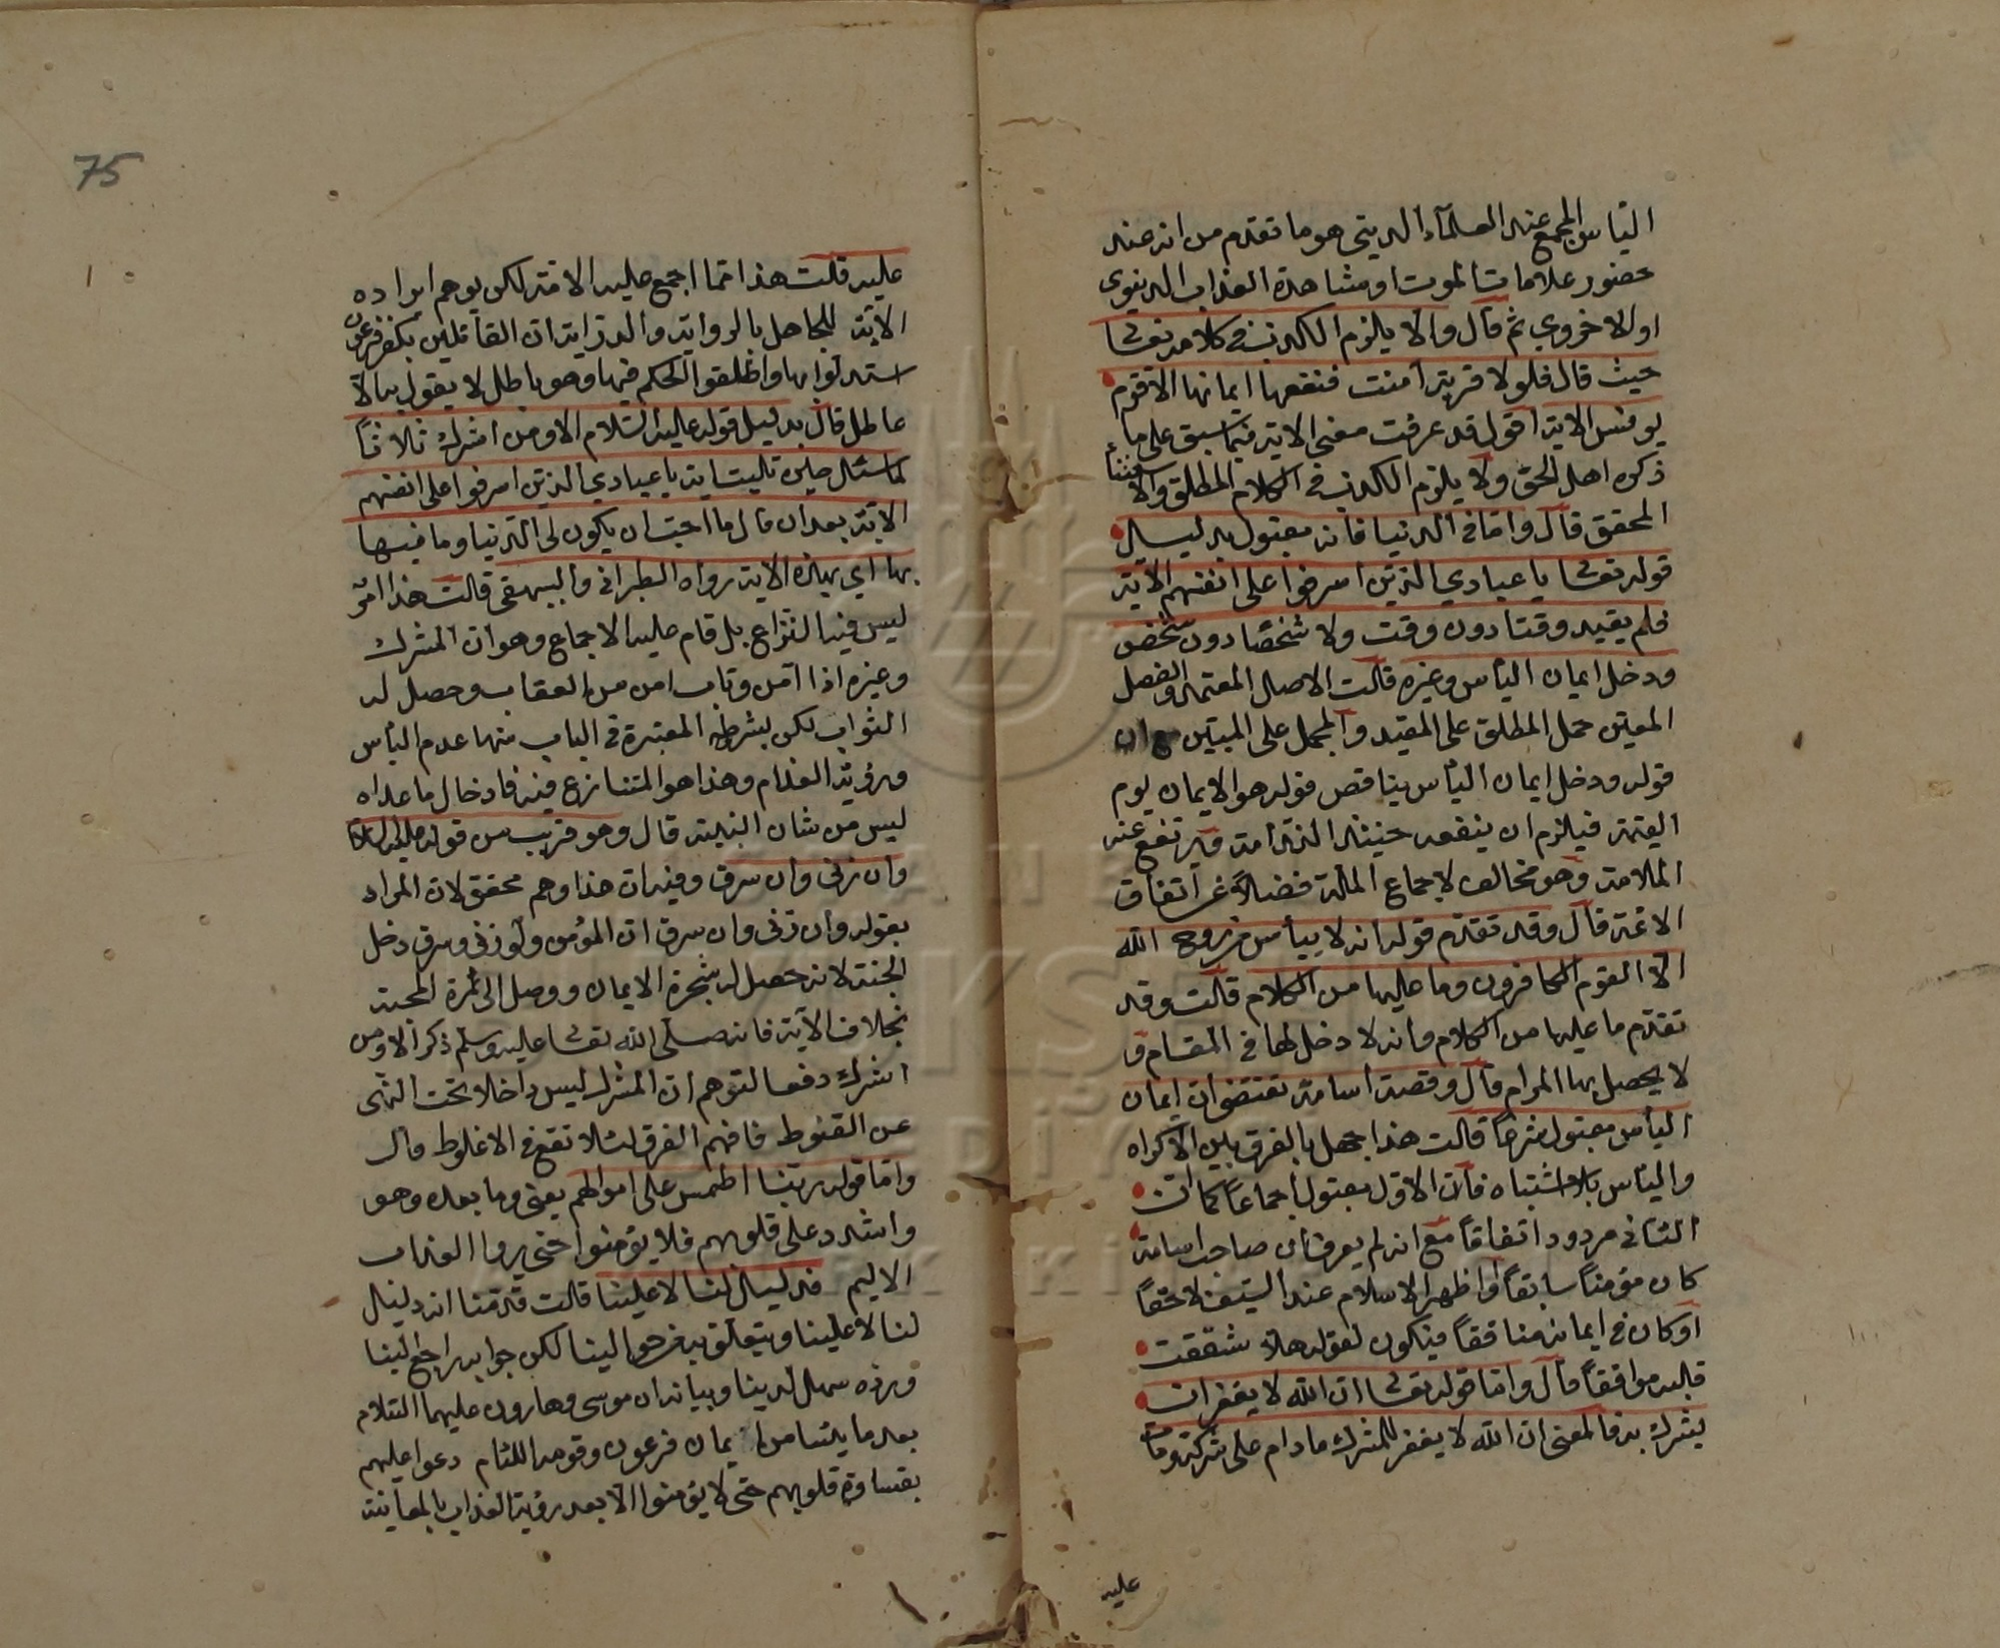 اليأس المجمع عند العلماء الديني هو ما تقدم من انه عند
حضور علامات الموت او مشاهدة العذاب الدنيوي
او الاخروي ثم قال والا يلزم الكذب في كلامه تعالى
حيث قال فلولا قرية آمنت فنفعها ايمانها الا قوم
يونس الاية اقول قد عرفت معنى الاية فيما سبق على ما
ذكره اهل الحق ولا يلزم الكذب في الكلام المطلق والاستثناء
المحقق قال واما في الدنيا فانه مقبول بدليل
قوله تعالى يا عبادي الذين اسرفوا على انفسهم الاية
فلم يقيد وقتا دون وقت ولا شخصا دون شخص
ودخل ايمان اليأس وغيره قلت الاصل المعتمد والفصل
المعين حمل المطلق على المقيد والمجمل على المبين مع ان
قوله ودخل ايمان اليأس يناقض قوله هو الايمان يوم
القيمة فيلزم ان ينفعه حينئذ الندامة ويرتفع عنه
الملامة وهو مخالف لاجماع الملة فضلا عن اتفاق
الائمة قال وقد تقدم قوله انه لا ييأس من روح الله
الا القوم الكافرون وما عليها من الكلام قلت وقد
تقدم ما عليها من الكلام وانه لا دخل لها في المقام و
لا يحصل بها المرام قال وقصة اسامة تقتضي ان ايمان
اليأس مقبول شرعا قلت هذا جهل بالفرق بين الاكراه
واليأس بلا اشتباه فان الاول مقبول اجماعا كما ان
الثاني مردود اتفاقا مع انه لم يعرف ان صاحب اسامة
كان مؤمنا سابقا واظهر الاسلام عند السيف لاحقا
او كان في ايمانه منافقا فيكون لقوله هلا شققت
قلبه موافقا قال واما قوله تعالى ان الله لا يغفر ان
يشرك به فالمعنى ان الله لا يغفر للمشرك ما دام على شركه ومات
عليه
75
عليه قلت هذا مما اجمع عليه الامة لكن يوهم ايراده
الاية للجاهل بالرواية والدراية ان القائلين بكفر فرعون
استدلوا بها واطلقوا الحكم فيها وهو باطل لا يقول به الا
عاطل قال بدليل قوله عليه السلام الا ومن اشرك ثلاثا
لما سئل حين تليت اية يا عبادي الذين اسرفوا على انفسهم
الاية بعد ان قال ما احب ان يكون لي الدنيا وما فيها
بها اي بهذه الاية رواه الطبراني والبيهقي قلت هذا امر
ليس فيه النزاع بل قام عليه الاجماع وهو ان المشرك
وغيره اذا آمن وتاب امن من العقاب وحصل له
الثواب لكن بشرطه المعتبرة في الباب منها عدم اليأس
ورؤية العذاب وهذا هو المتنازع فيه فادخال ما عداه
ليس من شان النبيه قال وهو قريب من قوله عليه السلام
وان زنى وان سرق وفيه ان هذا وهم محقق لان المراد
بقوله وان زنى وان سرق ان المؤمن ولو زنى وسرق دخل
الجنة لانه حصل له شجرة الايمان ووصل الى ثمرة المحبة
بخلاف الآية فانه صلى الله تعالى عليه وسلم ذكر الا ومن
اشرك دفعا لتوهم ان المشرك ليس داخلا تحت النهي
عن القنوط فافهم الفرق لئلا تقع في الاغلوط قال
واما قوله ربنا اطمس على اموالهم يعني وما بعده وهو
واشدد على قلوبهم فلا يؤمنوا حتى يروا العذاب
الاليم فدليل لنا لا علينا قلت قدمنا انه دليل
لنا لا علينا ويتعلق به فرحوا لينا لكن جوابه راجع الينا
ورده سهل لدينا وبيانه ان موسى وهارون عليهما السلام
بعد ما يئسا من ايمان فرعون وقومه اللئام دعوا عليهم
بقساوة قلوبهم حتى لا يؤمنوا الا بعد رؤية العذاب بالمعاينة